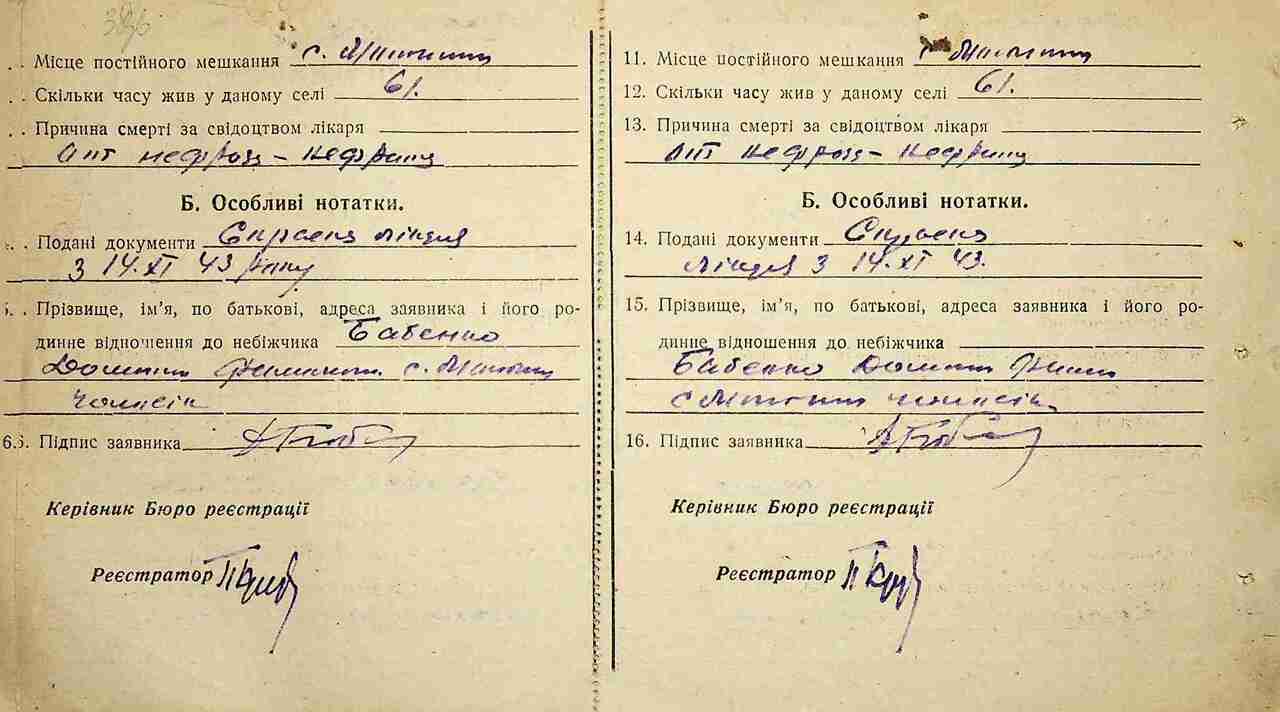 . . Місце постійного мешкання с.
. . Скільки часу жив у даному селі 61.
. . Причина смерті за свідоцтвом лікаря
нефрозо-нефрит
Б. Особливі нотатки.
. . Подані документи Справка лікаря
з 14.XI 43 року
. . Прізвище, ім’я, по батькові, адреса заявника і його ро-
динне відношення до небіжчика Бабенко
с.
6. Підпис заявника
Керівник Бюро реєстрації
Реєстратор
11. Місце постійного мешкання с.
12. Скільки часу жив у даному селі 61.
13. Причина смерті за свідоцтвом лікаря
нефрозо-нефрит
Б. Особливі нотатки.
14. Подані документи Справка
лікаря з 14.XI 43.
15. Прізвище, ім’я, по батькові, адреса заявника і його ро-
динне відношення до небіжчика
Бабенко
с.
16. Підпис заявника
Керівник Бюро реєстрації
Реєстратор